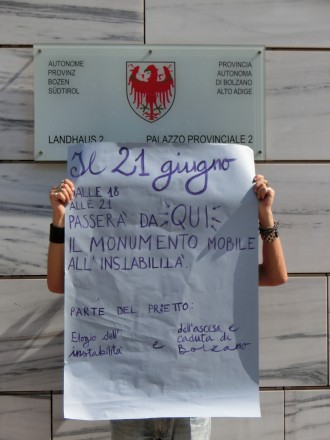 AUTONOME
PROVINZ
BOZEN
SÜDTIROL
PROVINCIA
AUTONOMA
DI BOLZANO
ALTO ADIGE
LANDHAUS 2
PALAZZO PROVINCIALE 2
Il 21 giugno
DALLE 18
ALLE 21
PASSERÀ DA QUI
IL MONUMENTO MOBILE
ALL'INSTABILITÀ
PARTE DEL PRIETTO:
Elogio dell'
instabilità
e
dell'ascesa e
caduta di
Bolzano